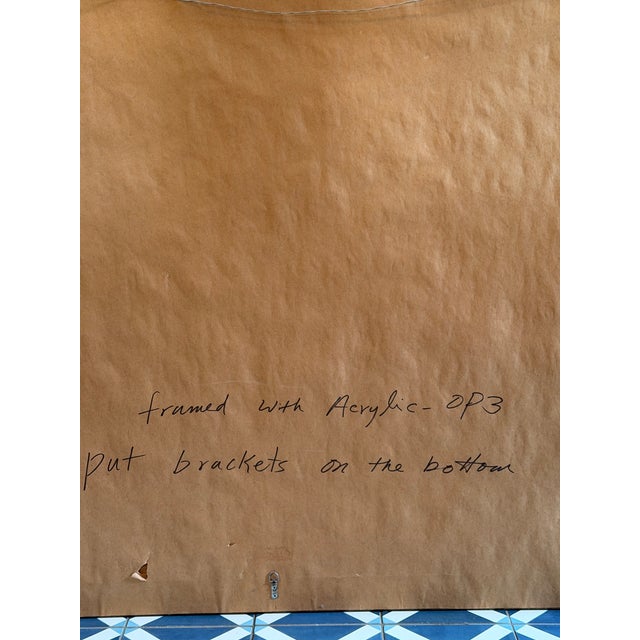 framed with Acrylic - OP3
put brackets on the bottom